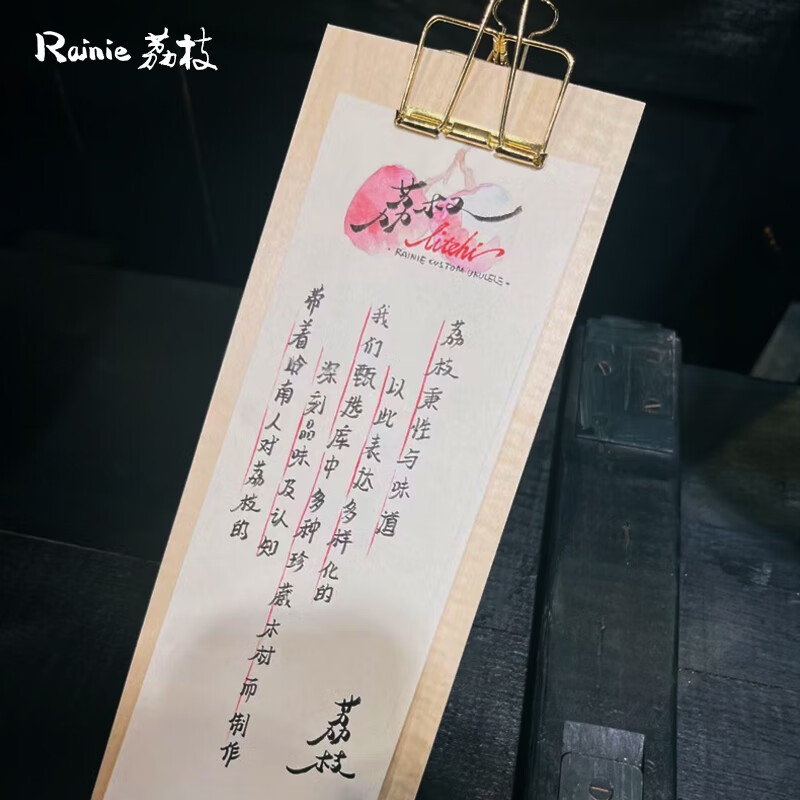 Rainie 荔枝
荔枝
litchi
- RAINIE CUSTOM UKULELE -
带着岭南人对荔枝的
深刻品味及认知
我们甄选库中多种珍藏木材而制作
以此表达多样化的
荔枝秉性与味道
荔枝